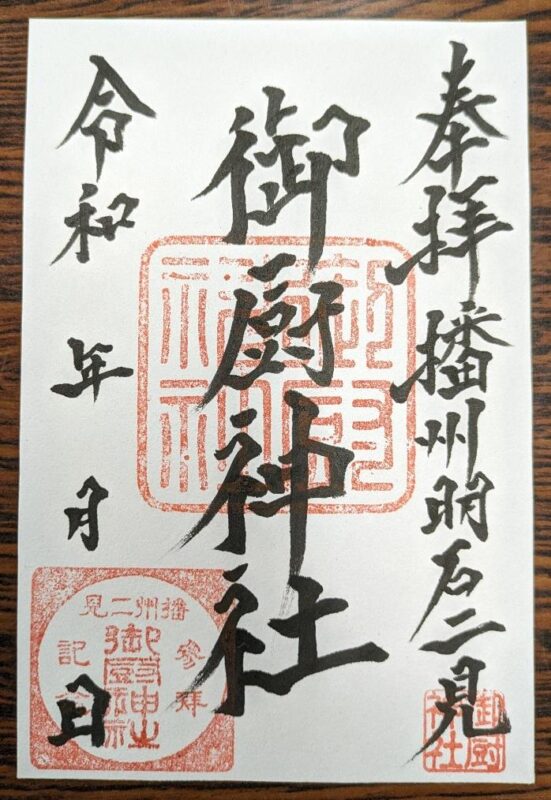 奉拝 播州明石二見
御厨神社
令和 年 月 日
御厨神社
播州二見
御厨神社
参拝
記念
御厨神社